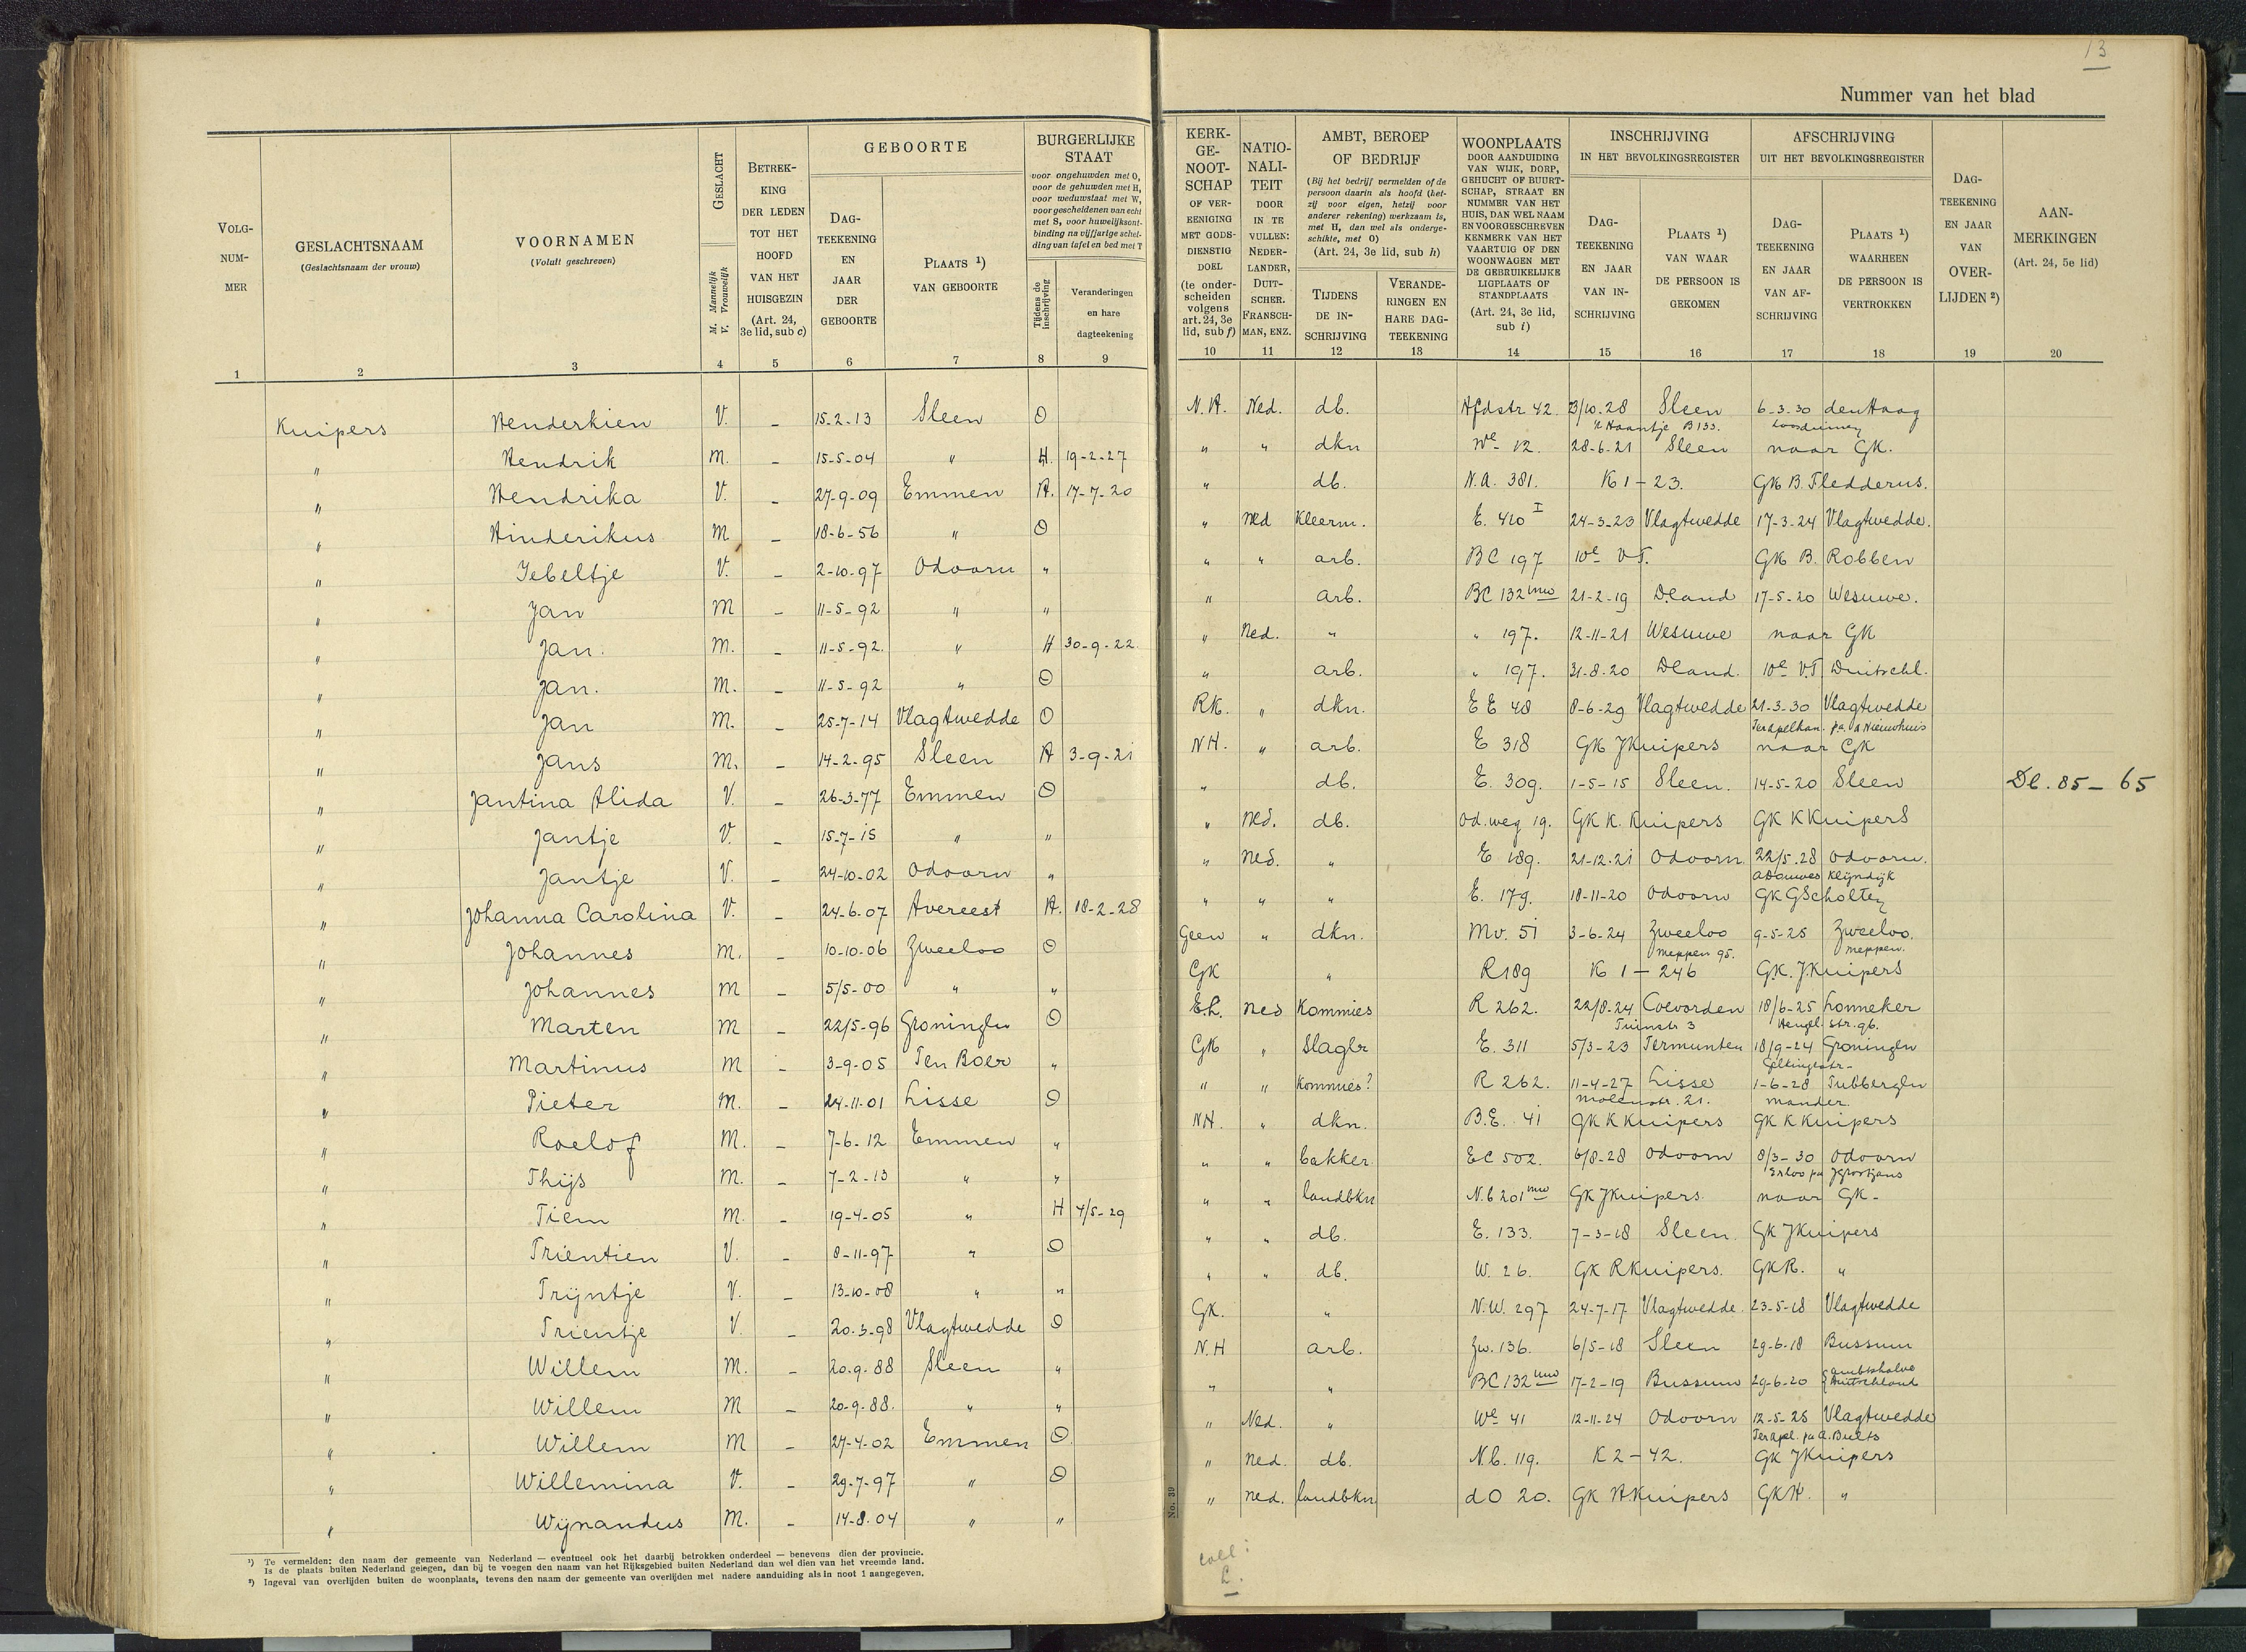 13
Nummer van het blad
VOLG-NUM-MER
GESLACHTSNAAM
(Geslachtsnaam der vrouw)
VOORNAMEN
(Voluit geschreven)
GESLACHT
M. Mannelijk
V. Vrouwelijk
BETREK-KING DER LEDEN TOT HET HOOFD VAN HET HUISGEZIN
(Art. 24, 3e lid, sub c)
GEBOORTE
DAG-TEEKENING EN JAAR DER GEBOORTE
PLAATS ¹) VAN GEBOORTE
BURGERLIJKE STAAT
voor ongehuwden met O,
voor de gehuwden met H,
voor weduwstaat met W,
voor gescheidenen van echt
met S, voor huwelijksont-
binding na vijfjarige schei-
ding van tafel en bed met T
Tijdens de inschrijving
Veranderingen en hare dagteekening
KERK-GE-NOOT-SCHAP OF VER-EENIGING MET GODS-DIENSTIG DOEL
(te onder-scheiden volgens art. 24, 3e lid, sub f)
NATIO-NALI-TEIT DOOR IN TE VULLEN: NEDER-LANDER, DUIT-SCHER, FRANSCH-MAN, ENZ.
AMBT, BEROEP OF BEDRIJF
(Bij het bedrijf vermelden of de
persoon daarin als hoofd (het-
zij voor eigen, hetzij voor
anderer rekening) werkzaam is,
met H, dan wel als onderge-
schikte, met O)
(Art. 24, 3e lid, sub h)
TIJDENS DE IN-SCHRIJVING
VERANDE-RINGEN EN HARE DAG-TEEKENING
WOONPLAATS
DOOR AANDUIDING VAN WIJK, DORP, GEHUCHT OF BUURT-SCHAP, STRAAT EN NUMMER VAN HET HUIS, DAN WEL NAAM EN VOORGESCHREVEN KENMERK VAN HET VAARTUIG OF DEN WOONWAGEN MET DE GEBRUIKELIJKE LIGPLAATS OF STANDPLAATS
(Art. 24, 3e lid, sub i)
INSCHRIJVING IN HET BEVOLKINGSREGISTER
DAG-TEEKENING EN JAAR VAN IN-SCHRIJVING
PLAATS ¹) VAN WAAR DE PERSOON IS GEKOMEN
AFSCHRIJVING UIT HET BEVOLKINGSREGISTER
DAG-TEEKENING EN JAAR VAN AF-SCHRIJVING
PLAATS ¹) WAARHEEN DE PERSOON IS VERTROKKEN
DAG-TEEKENING EN JAAR VAN OVER-LIJDEN ²)
AAN-MERKINGEN
(Art. 24, 5e lid)
1 2 3 4 5 6 7 8 9 10 11 12 13 14 15 16 17 18 19 20
Kuipers Henderkien V. - 15-2-13 Sleen O N.H. Ned. db. Hfdstr 42. 23/10.28 Sleen 6-3.30 den Haag
't Haantje B 133. Loosduinen
" Hendrik M. - 15-5-04 " H. 19-2-27 " " dkn We 12. 28-6.21 Sleen naar GK.
" Hendrika V. - 27-9-09 Emmen H. 17-7-20 " db. N.A. 381. K 1 - 23. GK B. Fledderus.
" Hinderikus M - 18-6-56 " O " Ned Kleerm. E. 420 I 24-3-23 Vlagtwedde 17-3-24 Vlagtwedde.
" Jebeltje V. - 2-10-97 Odoorn " " " arb. BC 197 10e VT. GK B. Robben
" Jan M - 11-5-92 " " " arb. BC 132 nw 21-2-19 Dland 17-5-20 Wesuwe.
" Jan. M. - 11-5-92. " H 30-9-22. " Ned. " " 197. 12-11-21 Wesuwe naar GK
" Jan. M. - 11-5-92 " O " arb. " 197. 31-8-20 Dland. 10e V.T Duitschl.
" Jan M. - 25-7-14 Vlagtwedde O RK. " dkn. EE 48 8-6-29 Vlagtwedde 21-3-30 Vlagtwedde
Terapelkan. pa. Nieuwhuis
" Jans M. - 14-2-95 Sleen H 3-9-21 NH. " arb. E 318 GK JKuipers naar GK
" Jantina Alida V. - 26-3-77 Emmen O " db. E. 309. 1-5-15 Sleen. 14-5-20 Sleen Dl. 85 - 65
" Jantje V. - 15-7-15 " " " Ned. db. Od.weg 19. GK K. Kuipers GK K Kuipers
" Jantje V. - 24-10-02 Odoorn " " Ned. " E 189. 21-12-21 Odoorn. 22/5.28 Odoorn.
ADouwes Klijndijk
" Johanna Carolina V. - 24-6.07 Avereest H. 18-2-28 " " " E. 179. 18-11-20 Odoorn GK GScholten
" Johannes M. - 10-10-06 Zweeloo O Geen " dkn. Mv. 51 3-6-24 Zweeloo 9-5-25 Zweeloo.
Meppen 95. Meppen.
" Johannes M - 5/5-00 " " GK " R189 K 1 - 246 G.K. J.Kuipers
" Marten M - 22/5-96 Groningen O E.L. Ned Kommies R 262. 22/8.24 Coevorden 18/6-25 Lonneker
Tuinstr 3 Hengel. str. 96.
" Martinus M - 3-9-05 Ten Boer " GK " Slager E. 311 5/3-23 Termunten 18/9-24 Groningen
" Pieter M. - 24-11-01 Lisse O " " Kommies? R 262. 11-4-27 Lisse 1-6-28 Tubbergen
Molenstr. 21. Mander.
" Roelof M. - 7-6-12 Emmen " NH. " dkn. B.E. 41 GK K Kuipers GK K Kuipers
" Thijs M. - 7-2-13 " " " " bakker EC 502. 6/8-28 Odoorn 8/3-30 Odoorn
" Tiem M. - 19-4-05 " H 4/5-29 " " landbkn N.b 201 nw GK JKuipers naar GK-
" Trientien V. - 8-11-97 " O " " db. E. 133. 7-3-18 Sleen. GK JKuipers
" Trijntje V. - 13-10-08 " " " " db. W. 26. GK RKuipers. GKR. "
" Trientje V. - 20.3-98 Vlagtwedde O GK. " N.W. 297 24-7-17 Vlagtwedde. 23-5-18 Vlagtwedde
" Willem M. - 20.9.88 Sleen " N.H arb. Zw. 136. 6/5-18 Sleen 29-6.18 Bussum
" Willem M - 20-9-88. " " " " BC 132 nw 17-2-19 Bussum 29-6-20 ambtshalve Duitschland
" Willem M - 27-4-02 Emmen O " Ned. " We 41 12-11-24 Odoorn 12-5-25 Vlagtwedde
Terapel. pa A. Bults
" Willemina V. - 29-7-97 " O " Ned. db. N.b. 119. K 2 - 42. GK JKuipers
" Wijnandus M. - 14-8.04 " " " Ned. landbkn. dO 20. GK HKuipers GKH. "
No. 39
¹) Te vermelden: den naam der gemeente van Nederland — eventueel ook het daarbij betrokken onderdeel — benevens dien der provincie.
Is de plaats buiten Nederland gelegen, dan bij te voegen den naam van het Rijksgebied buiten Nederland dan wel dien van het vreemde land.
²) Ingeval van overlijden buiten de woonplaats, tevens den naam der gemeente van overlijden met nadere aanduiding als in noot 1 aangegeven.
coll:
L.